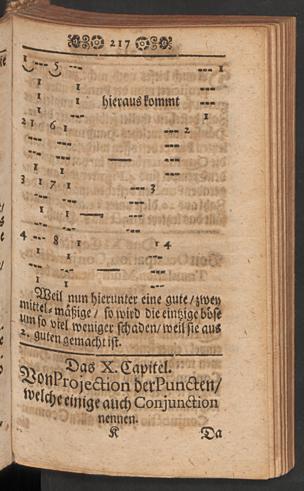 217
1 --- 5 --- --- 1
1 1 ---
1 1 hieraus kommt ---
1 1 --- 1
2 1 6 1 --- 2
--- --- ---
--- --- — ---
--- --- ---
3 1 7 1 --- 3
1 1 — ---
1 1 ---
4 --- 8 1 1 4
1 1 ---
1 1 --- ---
Weil nun hierunter eine gute / zwey
mittel-mäßige / so wird die eintzige böse
um so viel weniger schaden / weil sie aus
2. guten gemacht ist.
Das X. Capitel.
Von Projection der Puncten /
welche einige auch Conjunction
nennen.
K Da